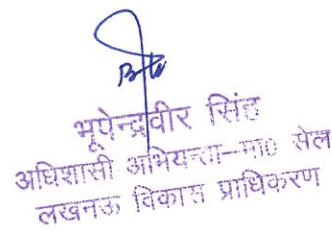 भूपेन्द्रवीर सिंह
अधिशासी अभियन्ता-मा० सेल
लखनऊ विकास प्राधिकरण